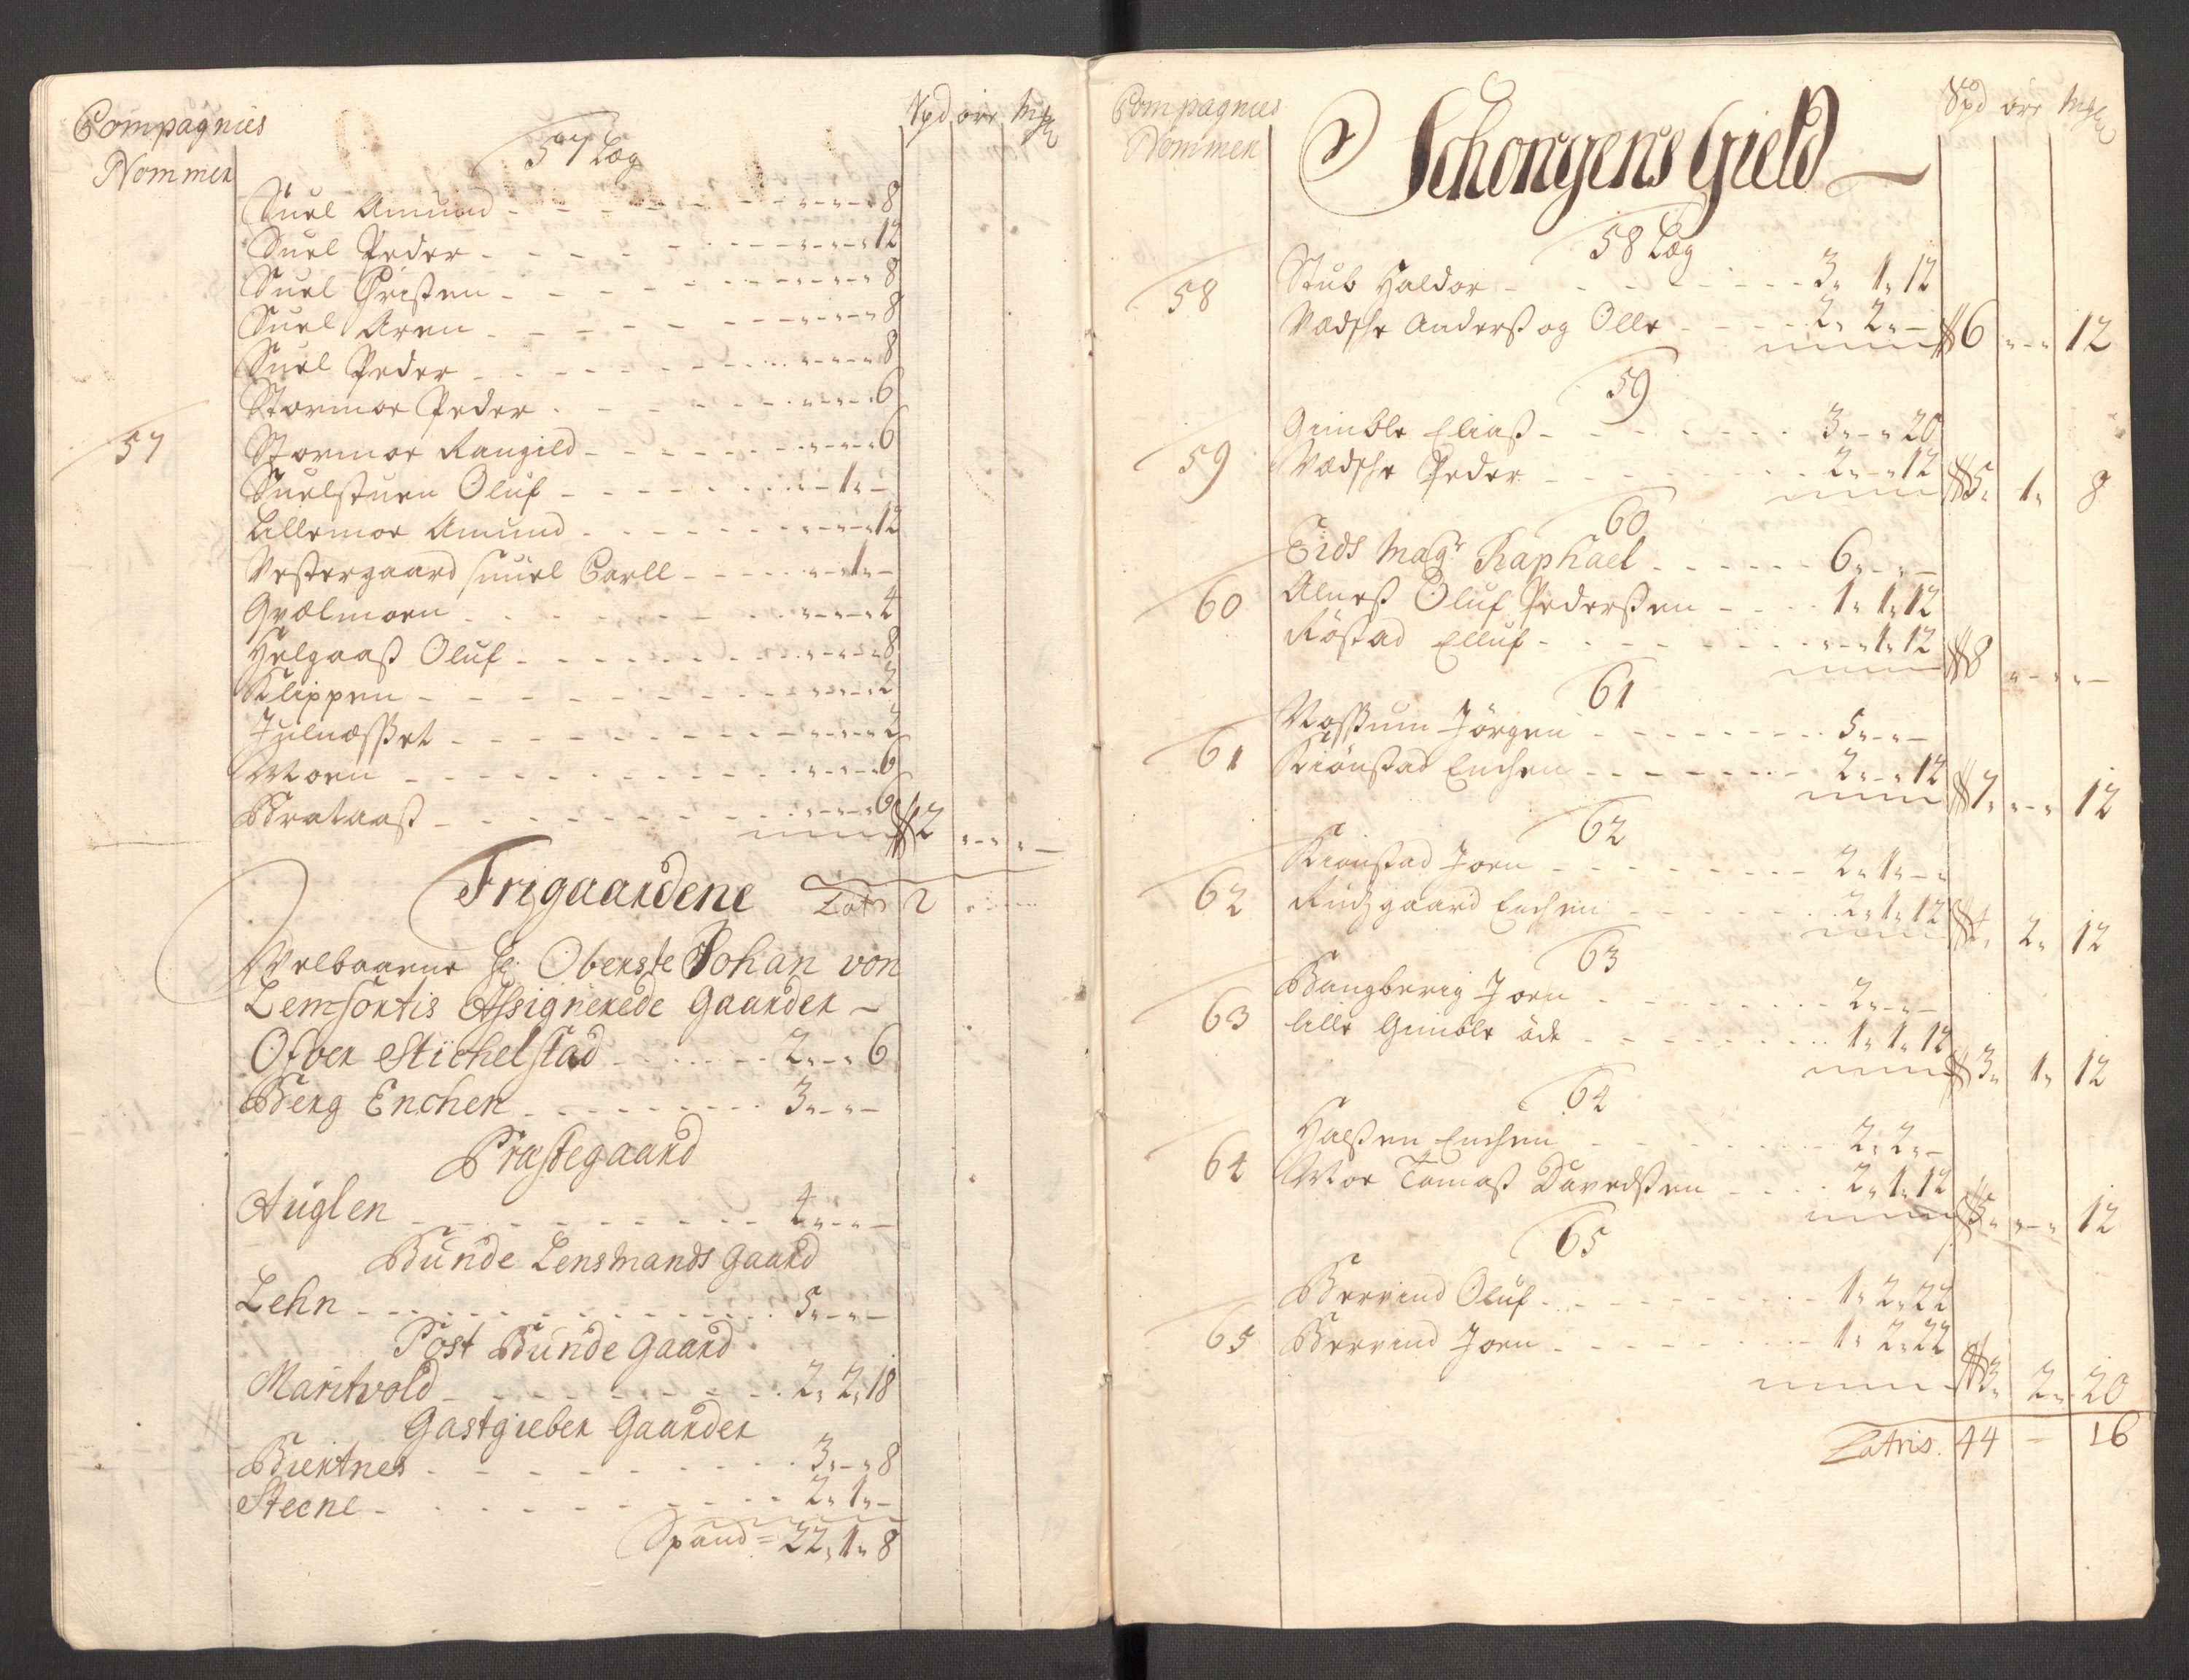 Compagnies Nommer
Spd öre mkl
57 Læg
57
Suul Amund - - - 8
Suul Peder - - - 12
Suul Christen - - - 8
Suul Aren - - - 8
Suul Peder - - - 8
Stormoe Peder - - - 6
Stormoe Rangild - - - 6
Suulstuen Oluf - - - 1 „ -
Lillemoe Amund - - - 12
Vestergaard Suuel Carll - - - 1 „ -
Qvælmoen - - - 4
Helgaaß Oluf - - - 8
Klippen - - - 2
Julnæsset - - - 2
Moen - - - 6
Brataaß - - - 6
2 „ - „ -
Frigaardene
Lats 2
Velbaarne Hr: Oberste Johan von
Lemfortis Assignerede Gaarder -
Ofver Stichelstad - - - 2 „ - „ 6
Berg Enchen - - - 3 „ - „ -
Præstegaard
Auglen - - - 4 „ - „ -
Bunde Lensmands Gaard
Lehn - - - 5 „ - „ -
Post Bunde Gaard
Maritvold - - - 2 „ 2 „ 18
Gastgieber Gaarder
Biertnes - - - 3 „ - „ 8
Steene - - - 2 „ 1 „ -
Spand = 22 „ 1 „ 8
Compagnies Nommer
Spd öre mkl
Schongens Gield
58 Læg
58
Stub Haldor - - - 3 „ 1 „ 12
Vædshe Anderß og Olle - - - 2 „ 2 „ -
6 „ - „ 12
59
59
Gimble Eliaß - - - 3 „ - „ 20
Vædshe Peder - - - 2 „ - „ 12
5 „ 1 „ 8
60
60
Eids Magr Raphael - - - 6 „ - „ -
Alneß Oluf Pederßen - - - 1 „ 1 „ 12
Röstad Elluf - - - 1 „ 12
8 „ - „ -
61
61
Voßum Jörgen - - - 5 „ - „ -
Kiönstad Enchen - - - 2 „ - „ 12
7 „ - „ 12
62
62
Kiönstad Joen - - - 2 „ 1 „ -
Rudzgaard Enchen - - - 2 „ 1 „ 12
4 „ 2 „ 12
63
63
Bangberig Joen - - - 2 „ - „ -
Lille Gimble öde - - - 1 „ 1 „ 12
3 „ 1 „ 12
64
64
Halßen Enchen - - - 2 „ 2 „ -
Moe Tomaß Davedßen - - - 2 „ 1 „ 12
5 „ - „ 12
65
65
Berrind Oluf - - - 1 „ 2 „ 22
Berrind Joen - - - 1 „ 2 „ 22
3 „ 2 „ 20
Latris. 44 - 16